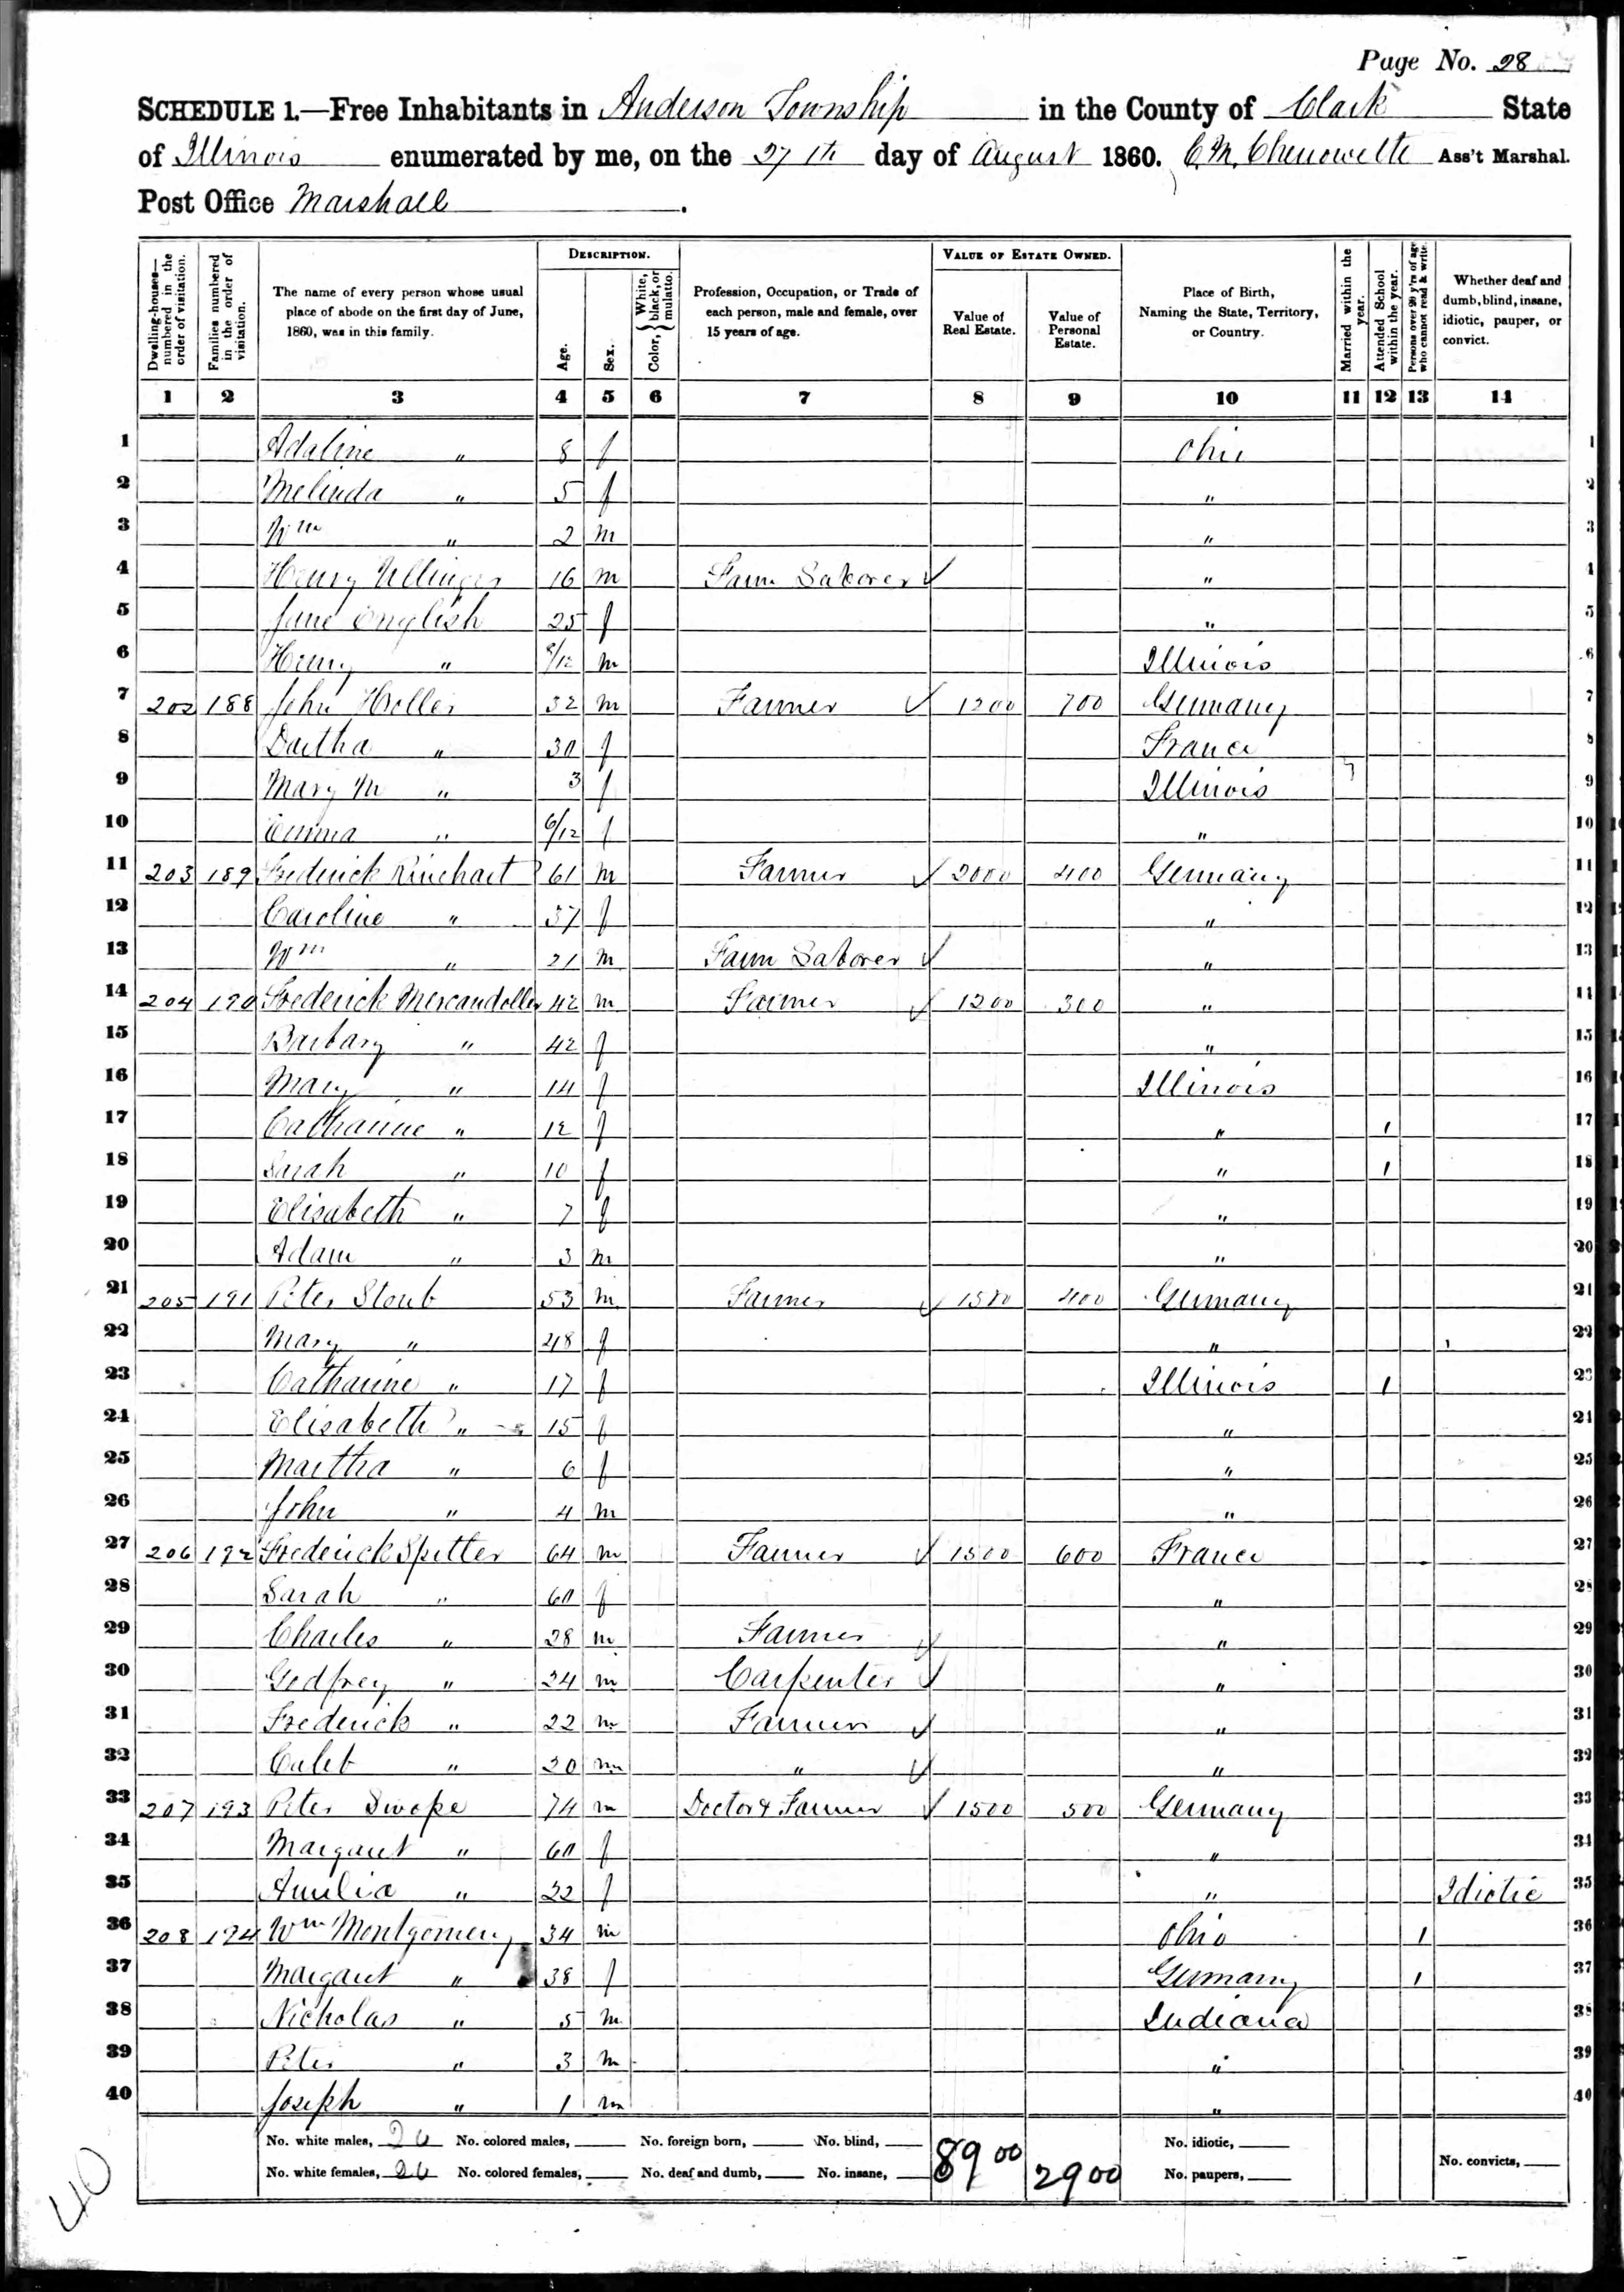 Page No. 28
SCHEDULE 1.—Free Inhabitants in Anderson Township in the County of Clark State
of Illinois enumerated by me, on the 27th day of August 1860. C.M. Chenowette Ass't Marshal.
Post Office Marshall.
Dwelling-houses—numbered in the order of visitation. Families numbered in the order of visitation. The name of every person whose usual place of abode on the first day of June, 1860, was in this family. DESCRIPTION. Age. Sex. Color, { White, black, or mulatto. Profession, Occupation, or Trade of each person, male and female, over 15 years of age. VALUE OF ESTATE OWNED. Value of Real Estate. Value of Personal Estate. Place of Birth, Naming the State, Territory, or Country. Married within the year. Attended School within the year. Persons over 20 y'rs of age who cannot read & write. Whether deaf and dumb, blind, insane, idiotic, pauper, or convict.
1 2 3 4 5 6 7 8 9 10 11 12 13 14
1 Adaline " 8 f Ohio 1
2 Melinda " 5 f " 2
3 Wm " 2 m " 3
4 Henry Ullinger 16 m Farm Laborer ✓ " 4
5 Jane English 25 f " 5
6 Henry " 8/12 m Illinois 6
7 202 188 John Holler 32 m Farmer ✓ 1200 700 Germany 7
8 Dartha " 30 f France 8
9 Mary M " 3 f Illinois 9
10 Emma " 6/12 f " 10
11 203 189 Frederick Rinehart 61 m Farmer ✓ 2000 400 Germany 11
12 Caroline " 37 f " 12
13 Wm " 21 m Farm Laborer ✓ " 13
14 204 190 Frederick Mercandoller 42 m Farmer ✓ 1200 300 " 14
15 Barbary " 42 f " 15
16 Mary " 14 f Illinois 16
17 Catharine " 12 f " 1 17
18 Sarah " 10 f " 1 18
19 Elisabeth " 7 f " 19
20 Adam " 3 m " 20
21 205 191 Peter Stoub 53 m Farmer ✓ 1500 400 Germany 21
22 Mary " 48 f " 22
23 Catharine " 17 f Illinois 1 23
24 Elisabeth " 15 f " 24
25 Martha " 6 f " 25
26 John " 4 m " 26
27 206 192 Frederick Spitler 64 m Farmer ✓ 1500 600 France 27
28 Sarah " 60 f " 28
29 Charles " 28 m Farmer ✓ " 29
30 Godfrey " 24 m Carpenter ✓ " 30
31 Frederick " 22 m Farmer ✓ " 31
32 Caleb " 20 m " ✓ " 32
33 207 193 Peter Swope 74 m Doctor & Farmer ✓ 1500 500 Germany 33
34 Margaret " 60 f " 34
35 Amelia " 22 f " Idiotic 35
36 208 194 Wm Montgomery 34 m Ohio 1 36
37 Margaret " 38 f Germany 1 37
38 Nicholas " 5 m Indiana 38
39 Peter " 3 m " 39
40 Joseph " 1 m " 40
No. white males, 20 No. colored males, No. foreign born, No. blind, 8900 2900 No. idiotic, No. convicts,
No. white females, 20 No. colored females, No. deaf and dumb, No. insane, No. paupers,
40